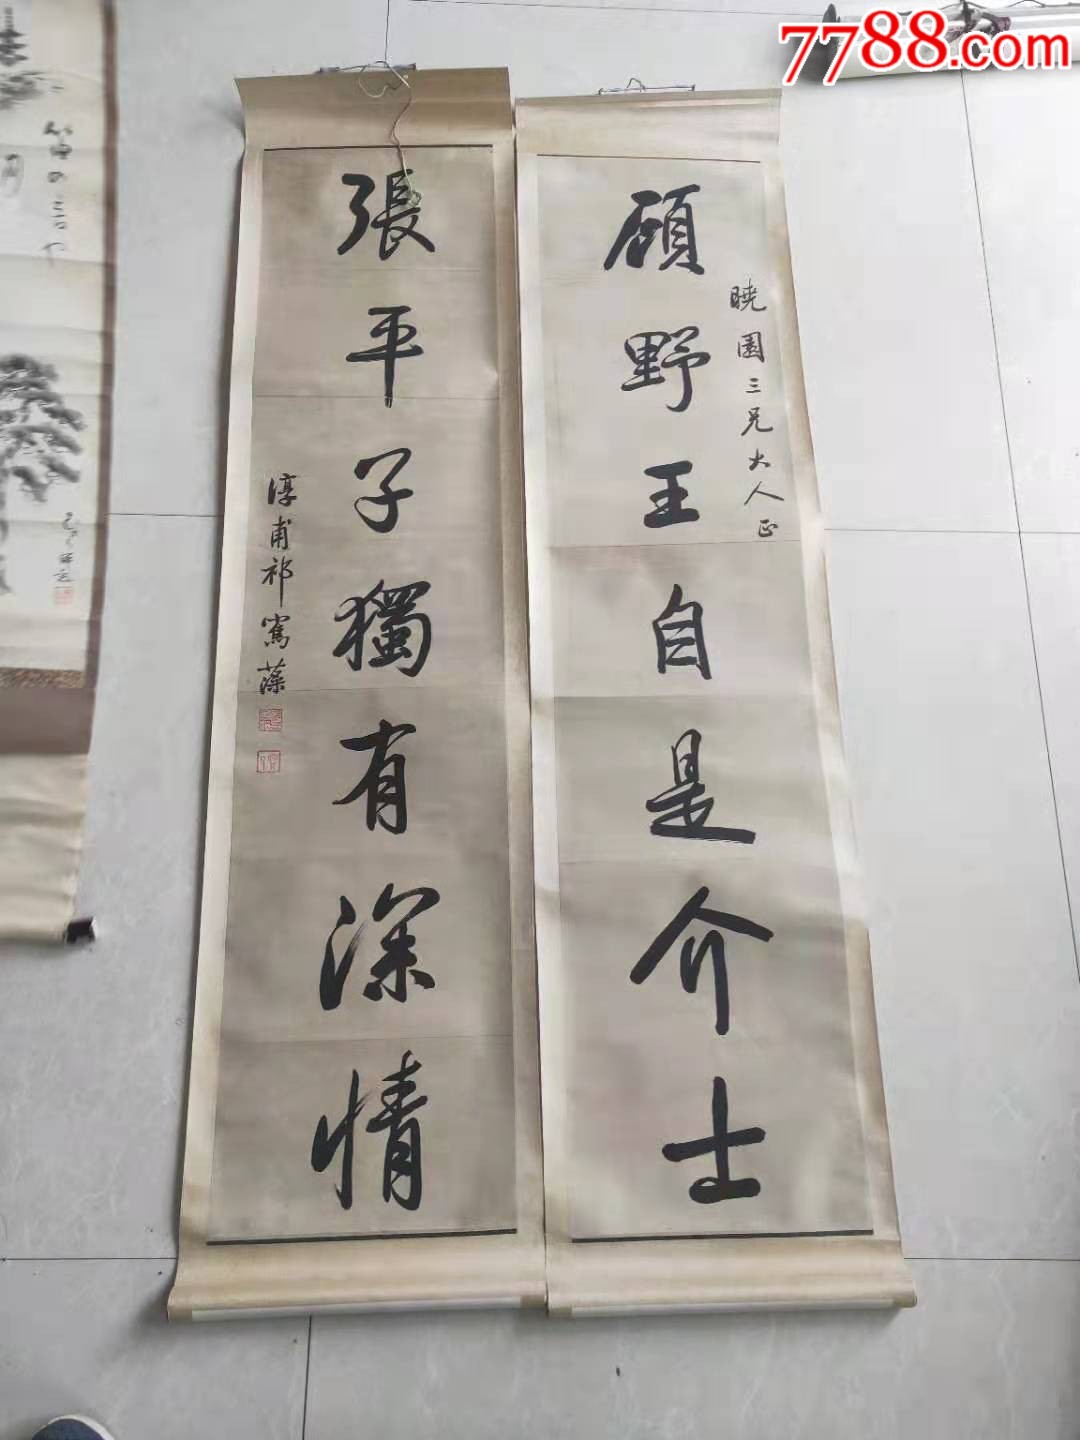 7788.com
顾野王自是介士
暁園三兄大人正
張平子獨有深情
淳甫祁寯藻